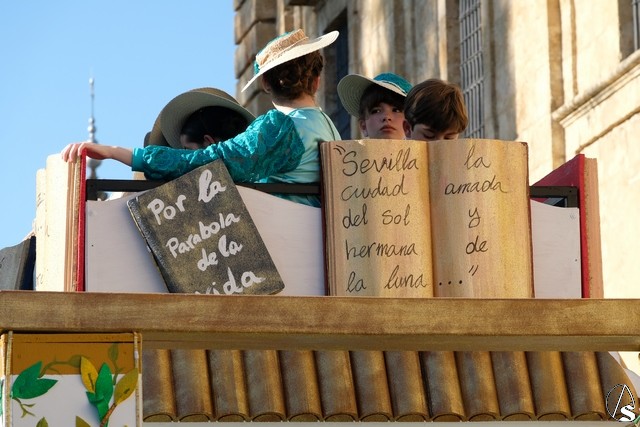 Por la
Parabola
de la
vida
"Sevilla
ciudad
del sol
hermana
la luna
la
amada
y
de
..."